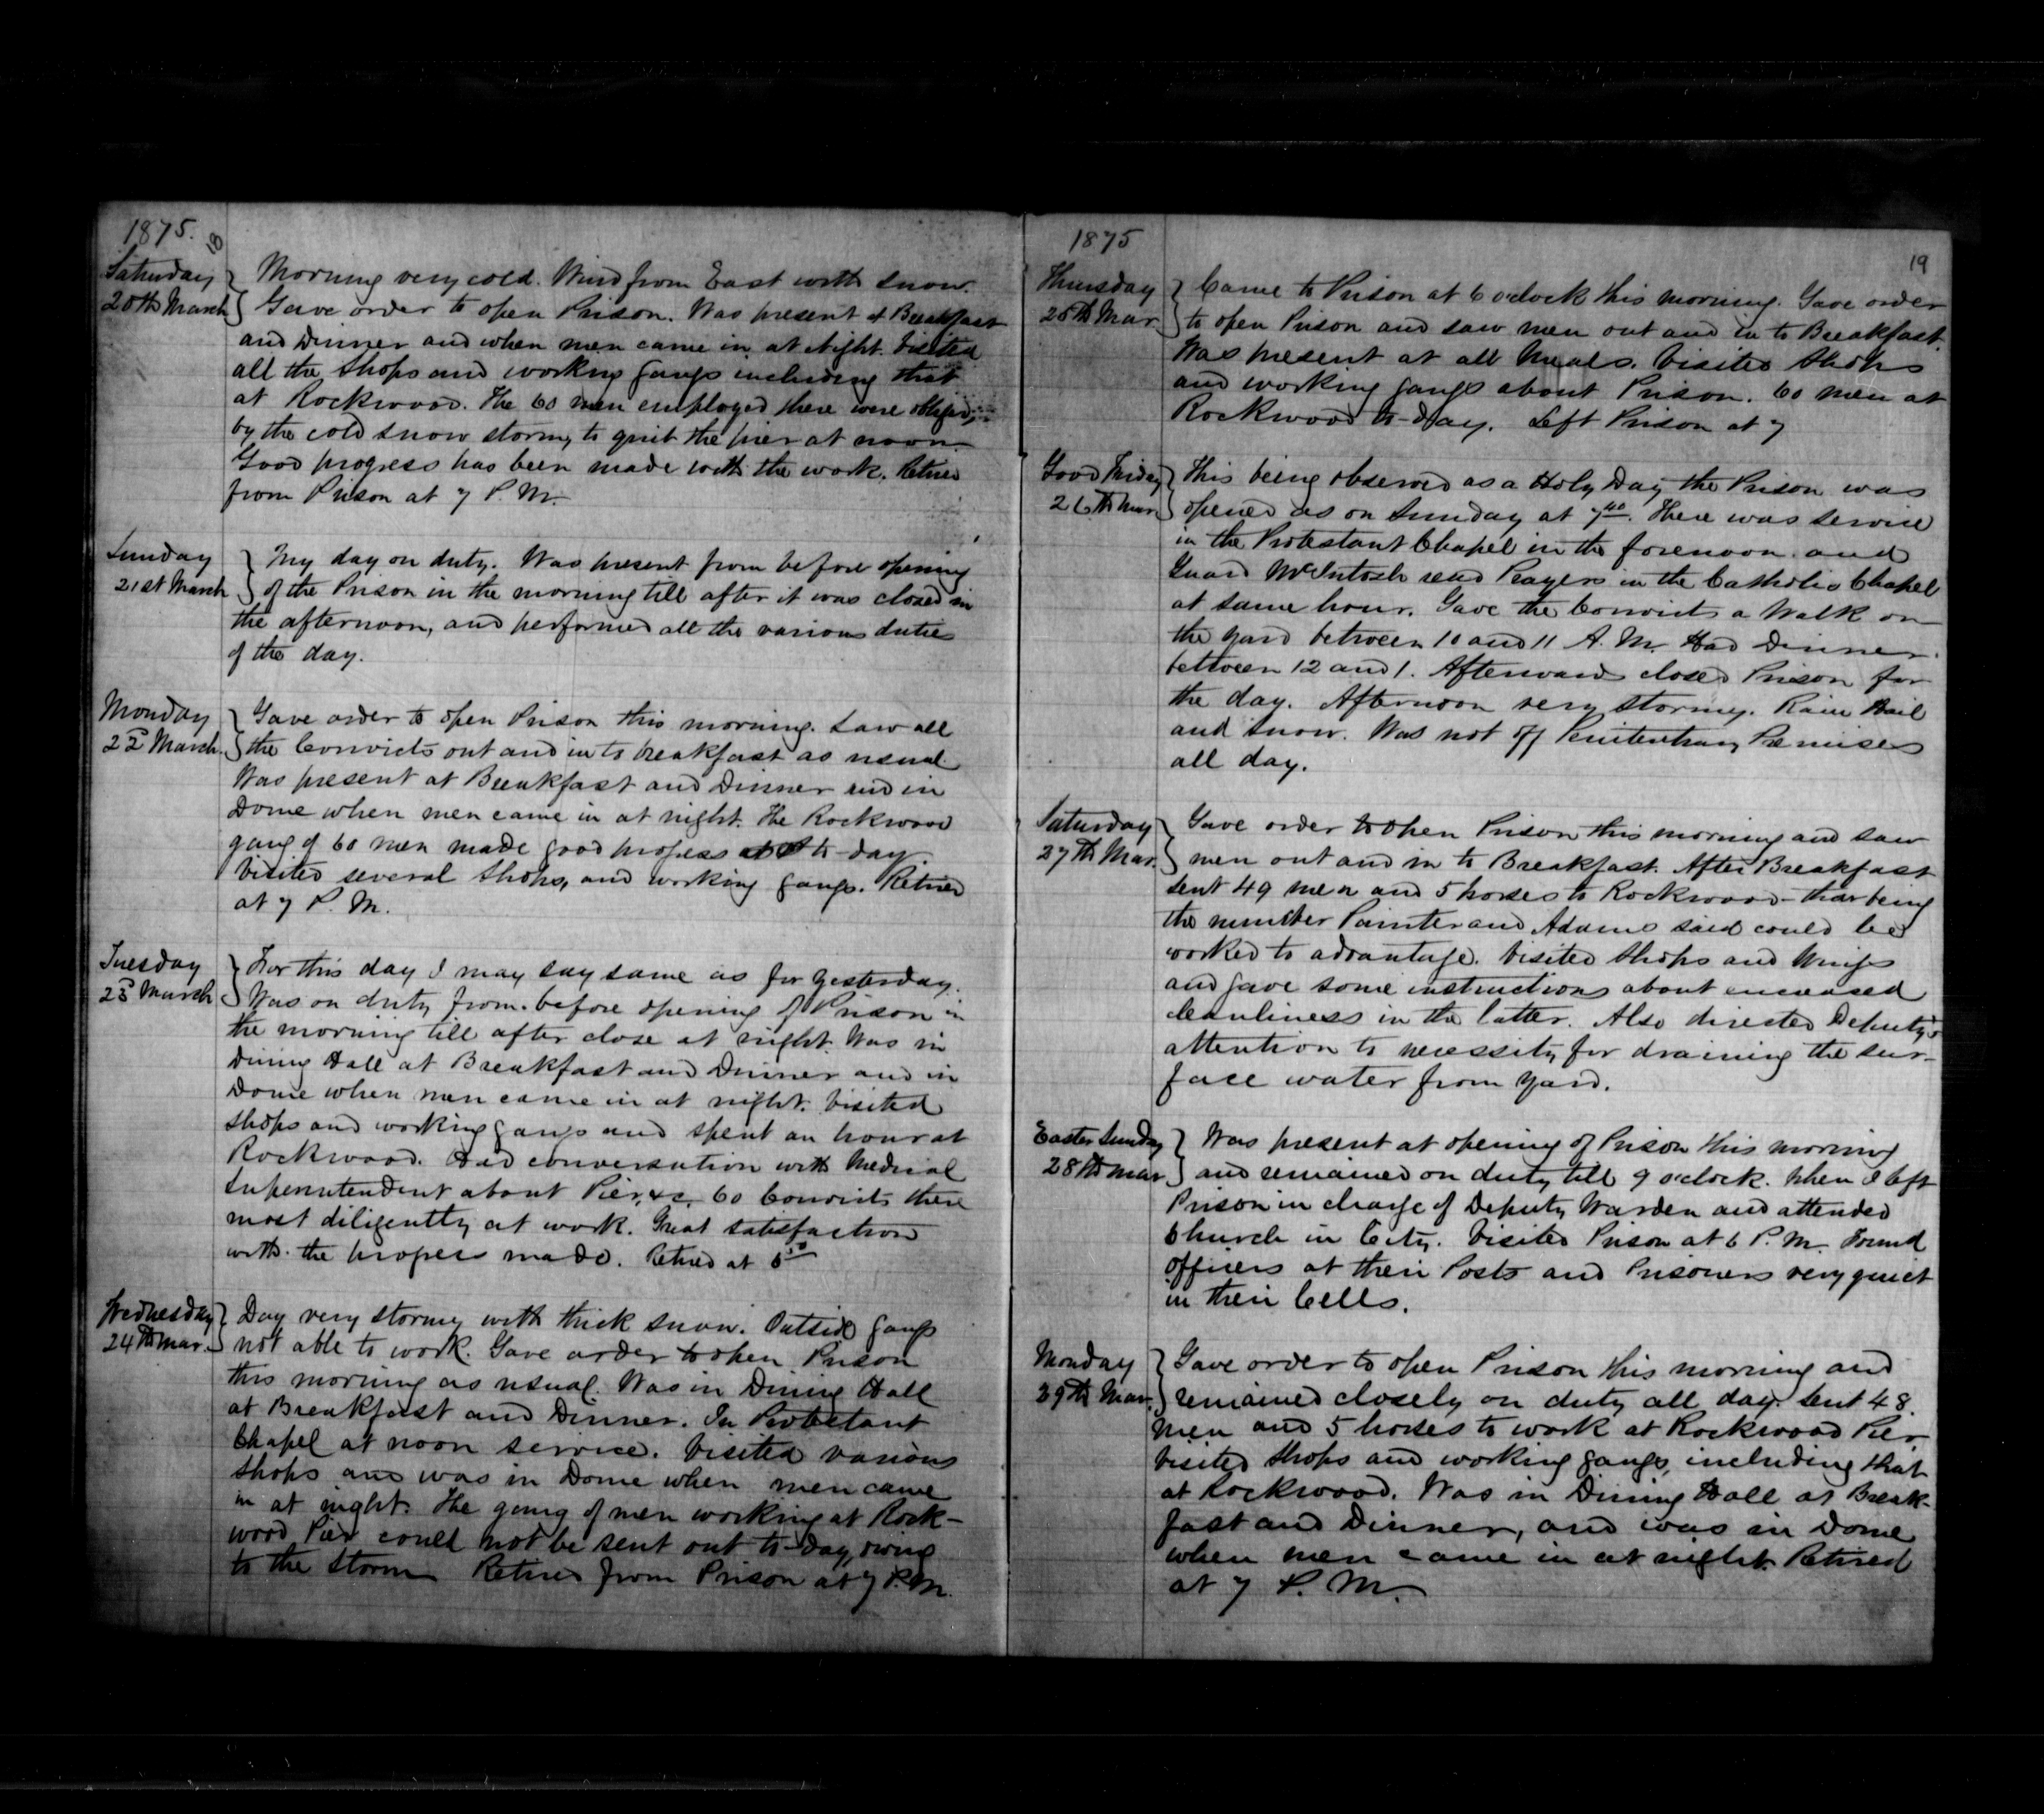 1875.
18
Saturday
20th March
Morning very cold. Wind from East with snow.
Gave order to open Prison. Was present at Breakfast
and Dinner and when men came in at Night. Visited
all the Shops and working gangs including that
at Rockwood. The 60 men employed there were obliged,
by the cold snow storm, to quit the pier at noon
Good progress has been made with the work. Retired
from Prison at 7 P.M.
Sunday
21st March
My day on duty. Was present from before opening
of the Prison in the morning till after it was closed in
the afternoon, and performed all the various duties
of the day.
Monday
22d March
Gave order to open Prison this morning. Saw all
the Convicts out and in to breakfast as usual.
Was present at Breakfast and Dinner and in
Dome when men came in at night. The Rockwood
gang of 60 men made good progress to-day.
Visited several Shops, and working gangs. Retired
at 7 P.M.
Tuesday
23d March
For this day I may say same as for yesterday.
Was on duty from before opening of Prison in
the morning till after close at night. Was in
Dining Hall at Breakfast and Dinner and in
Dome when men came in at night. Visited
Shops and working gangs and spent an hour at
Rockwood. Had conversation with Medical
Superintendent about Pier, &c. 60 Convicts there
most diligently at work. Great satisfaction
with the progress made. Retired at
Wednesday
24th Mar.
Day very stormy with thick snow. Outside gangs
not able to work. Gave order to open Prison
this morning as usual. Was in Dining Hall
at Breakfast and Dinner. In Protestant
Chapel at noon service. Visited various
Shops and was in Dome when men came
in at night. The gang of men working at Rock-
wood Pier could not be sent out to-day, owing
to the Storm Retired from Prison at 7 P.M.
1875
19
Thursday
25th Mar.
Came to Prison at 6 o'clock this morning. Gave order
to open Prison and saw men out and in to Breakfast.
Was present at all Meals. Visited Shops
and working gangs about Prison. 60 men at
Rockwood to-day. Left Prison at 7
Good Friday
26th Mar.
This being observed as a Holy Day the Prison was
opened as on Sunday at 7 40. There was service
in the Protestant Chapel in the forenoon and
Guard McIntosh read Prayers in the Catholic Chapel
at same hour. Gave the Convicts a Walk on
the yard between 10 and 11 A.M. Had Dinner
between 12 and 1. Afterwards closed Prison for
the day. Afternoon very stormy. Rain Hail
and Snow. Was not off Penitentiary Premises
all day.
Saturday
27th Mar.
Gave order to open Prison this morning and saw
men out and in to Breakfast. After Breakfast
sent 49 men and 5 horses to Rockwood - that being
the number Painter and Adams said could be
worked to advantage. Visited Shops and Wings
and gave some instructions about increased
cleanliness in the latter. Also directed Deputy's
attention to necessity for draining the sur-
face water from yard.
Easter Sunday
28th Mar
Was present at opening of Prison this morning
and remained on duty till 9 o'clock. When I left
Prison in charge of Deputy Warden and attended
Church in City. Visited Prison at 6 P.M. Found
Officers at their Posts and Prisoners very quiet
in their Cells.
Monday
29th Mar.
Gave order to open Prison this morning and
remained closely on duty all day. Sent 48
men and 5 horses to work at Rockwood Pier,
Visited Shops and working gangs, including that
at Rockwood. Was in Dining Hall at Break-
fast and Dinner, and was in Dome
when men came in at night. Retired
at 7 P.M.